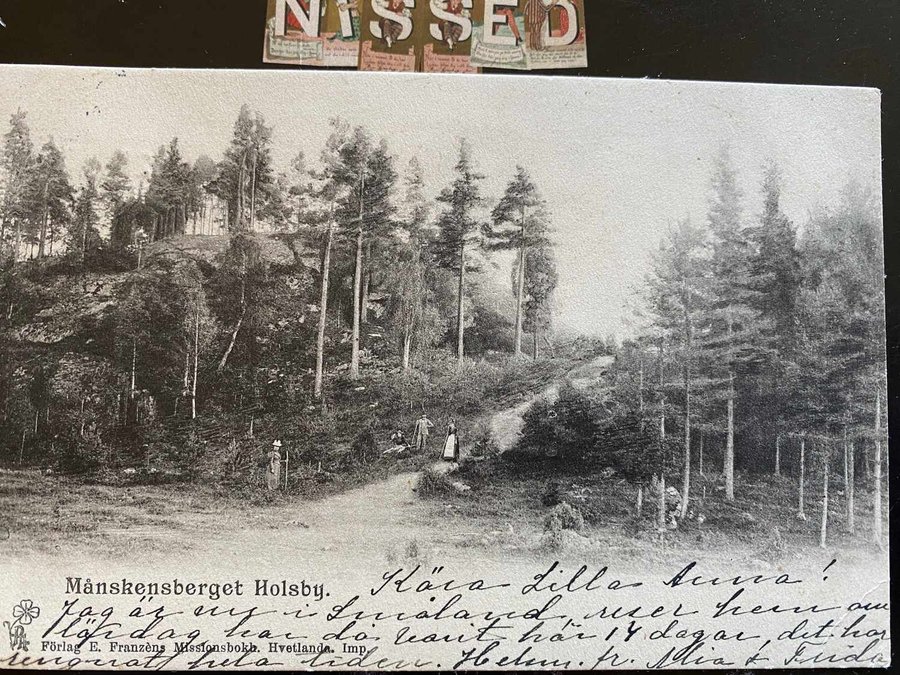 NISSED
Månskensberget Holsby.
Kära Lilla Anna!
Jag är nu i Småland, reser hem om
lördag har då varit här 14 dagar, det har
Förlag E. Franzèns Missionsbokh. Hvetlanda. Imp.
regnat hela tiden. Helsn. fr. Mia & Frida